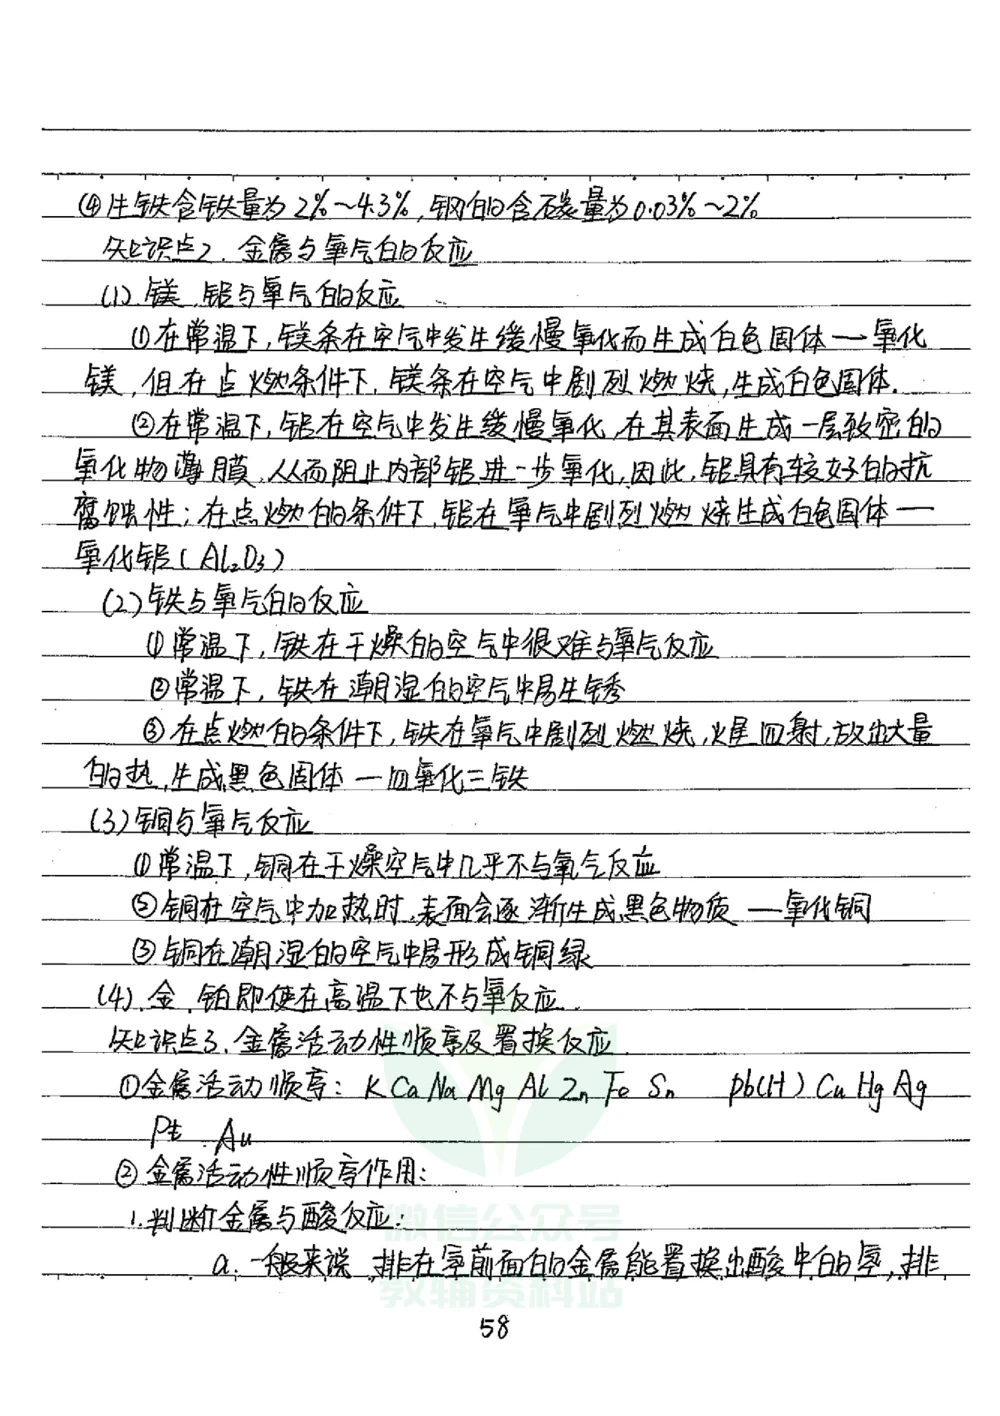 ④生铁含铁量为2%~4.3%,钢的含碳量为0.03%~2%
知识点2.金属与氧气的反应
(1).镁、铝与氧气的反应
①在常温下,镁条在空气中发生缓慢氧化而生成白色固体一氧化
镁,但在点燃条件下,镁条在空气中剧烈燃烧,生成白色固体.
②在常温下,铝在空气中发生缓慢氧化,在其表面生成一层致密的
氧化物薄膜,从而阻止内部铝进一步氧化,因此,铝具有较好的抗
腐蚀性;在点燃的条件下,铝在氧气中剧烈燃烧生成白色固体一
氧化铝(Al₂O₃)
(2)铁与氧气的反应
①常温下,铁在干燥的空气中很难与氧气反应
②常温下,铁在潮湿的空气中易生锈
③在点燃的条件下,铁在氧气中剧烈燃烧,火星四射,放出大量
的热,生成黑色固体一四氧化三铁
(3)铜与氧气反应
①常温下,铜在干燥空气中几乎不与氧气反应
②铜在空气中加热时,表面会逐渐生成黑色物质一氧化铜
③铜在潮湿的空气中易形成铜绿
(4).金、铂即使在高温下也不与氧反应.
知识点3.金属活动性顺序及置换反应
①金属活动顺序:K Ca Na Mg Al Zn Fe Sn Pb(H) Cu Hg Ag
Pt Au
②金属活动性顺序作用:
1.判断金属与酸反应:
a.一般来说,排在氢前面的金属能置换出酸中的氢,排
微信公众号
教辅资料站
58